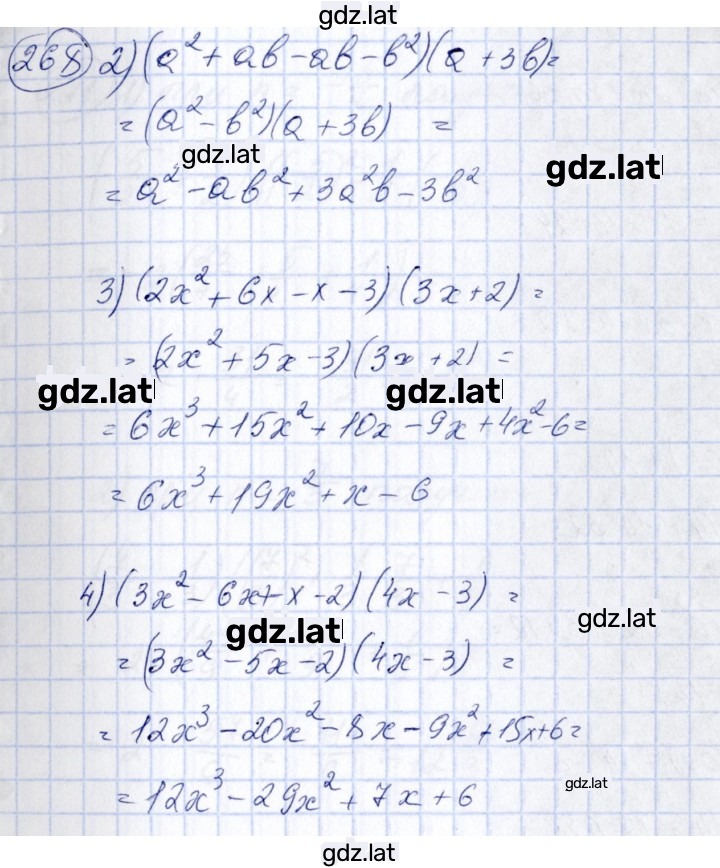 gdz.lat
268 2) (a² + ab - ab - b²)(a + 3b) =
= (a² - b²)(a + 3b) =
gdz.lat
gdz.lat
= a² - ab² + 3a²b - 3b²
3) (2x² + 6x - x - 3)(3x + 2) =
= (2x² + 5x - 3)(3x + 2) =
gdz.lat gdz.lat
= 6x³ + 15x² + 10x - 9x + 4x² - 6 =
= 6x³ + 19x² + x - 6
4) (3x² - 6x + x - 2)(4x - 3) =
gdz.lat
gdz.lat
= (3x² - 5x - 2)(4x - 3) =
= 12x³ - 20x² - 8x - 9x² + 15x + 6 =
= 12x³ - 29x² + 7x + 6
gdz.lat
gdz.lat